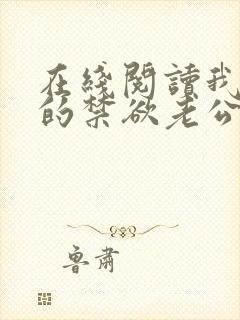 在綫閱讀我
的禁欲老公
魯肅